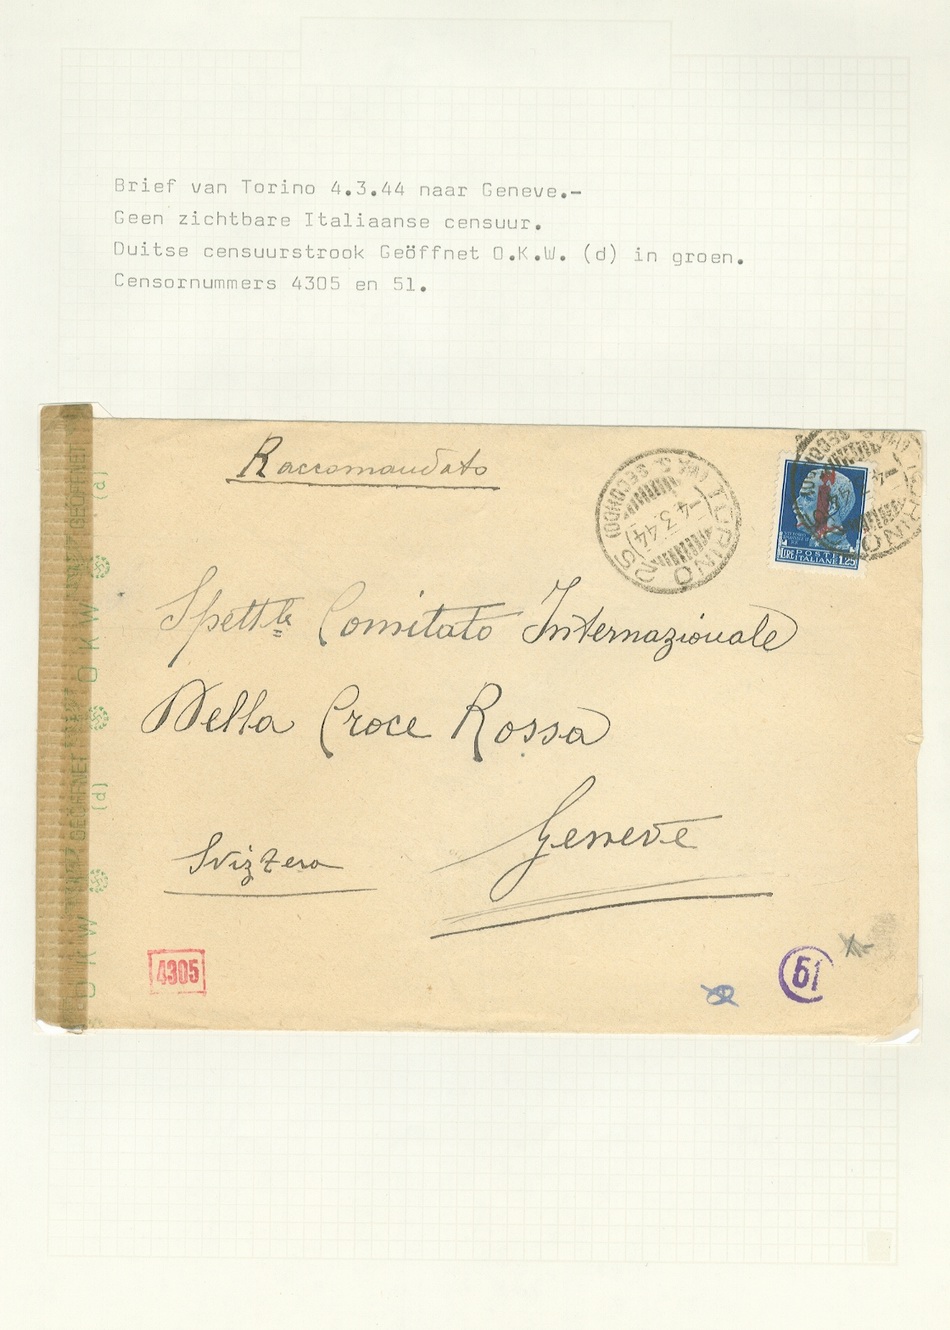 Brief van Torino 4.3.44 naar Geneve.-
Geen zichtbare Italiaanse censuur.
Duitse censuurstrook Geöffnet O.K.W. (d) in groen.
Censornummers 4305 en 51.
Raccomandato
TORINO 25
(VIA S. SECONDO)
-4.3.44
POSTE
LIRE ITALIANE 1.25
Spettle Comitato Internazionale
Della Croce Rossa
Geneve
Svizzera
4305
51
GEÖFFNET
(d)
OKW
GEÖFFNET
(d)
OKW